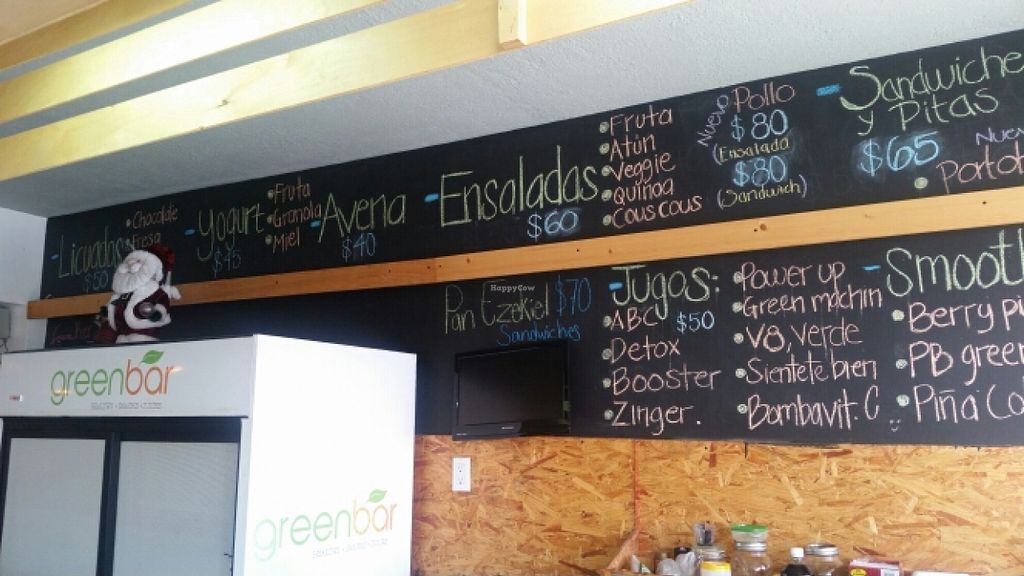 - Licuados
$50
Chocolate
Fresa
- Yogurt
$45
Fruta
Granola
Miel
- Avena
$40
- Ensaladas
$60
Fruta
Atún
Veggie
Quinoa
Couscous
Nuevo
Pollo
$80
(Ensalada
$80
Sandwich)
- Sandwiche
y Pitas
$65
Pan Ezekiel $70
Sandwiches
HappyCow
- Jugos:
$50
ABC
Detox
Booster
Zinger
Power up
Green machin
V8, Verde
Sientete bien
Bombavit. C
- Smoot
Berry
PB green
Piña Co
greenbar
greenbar